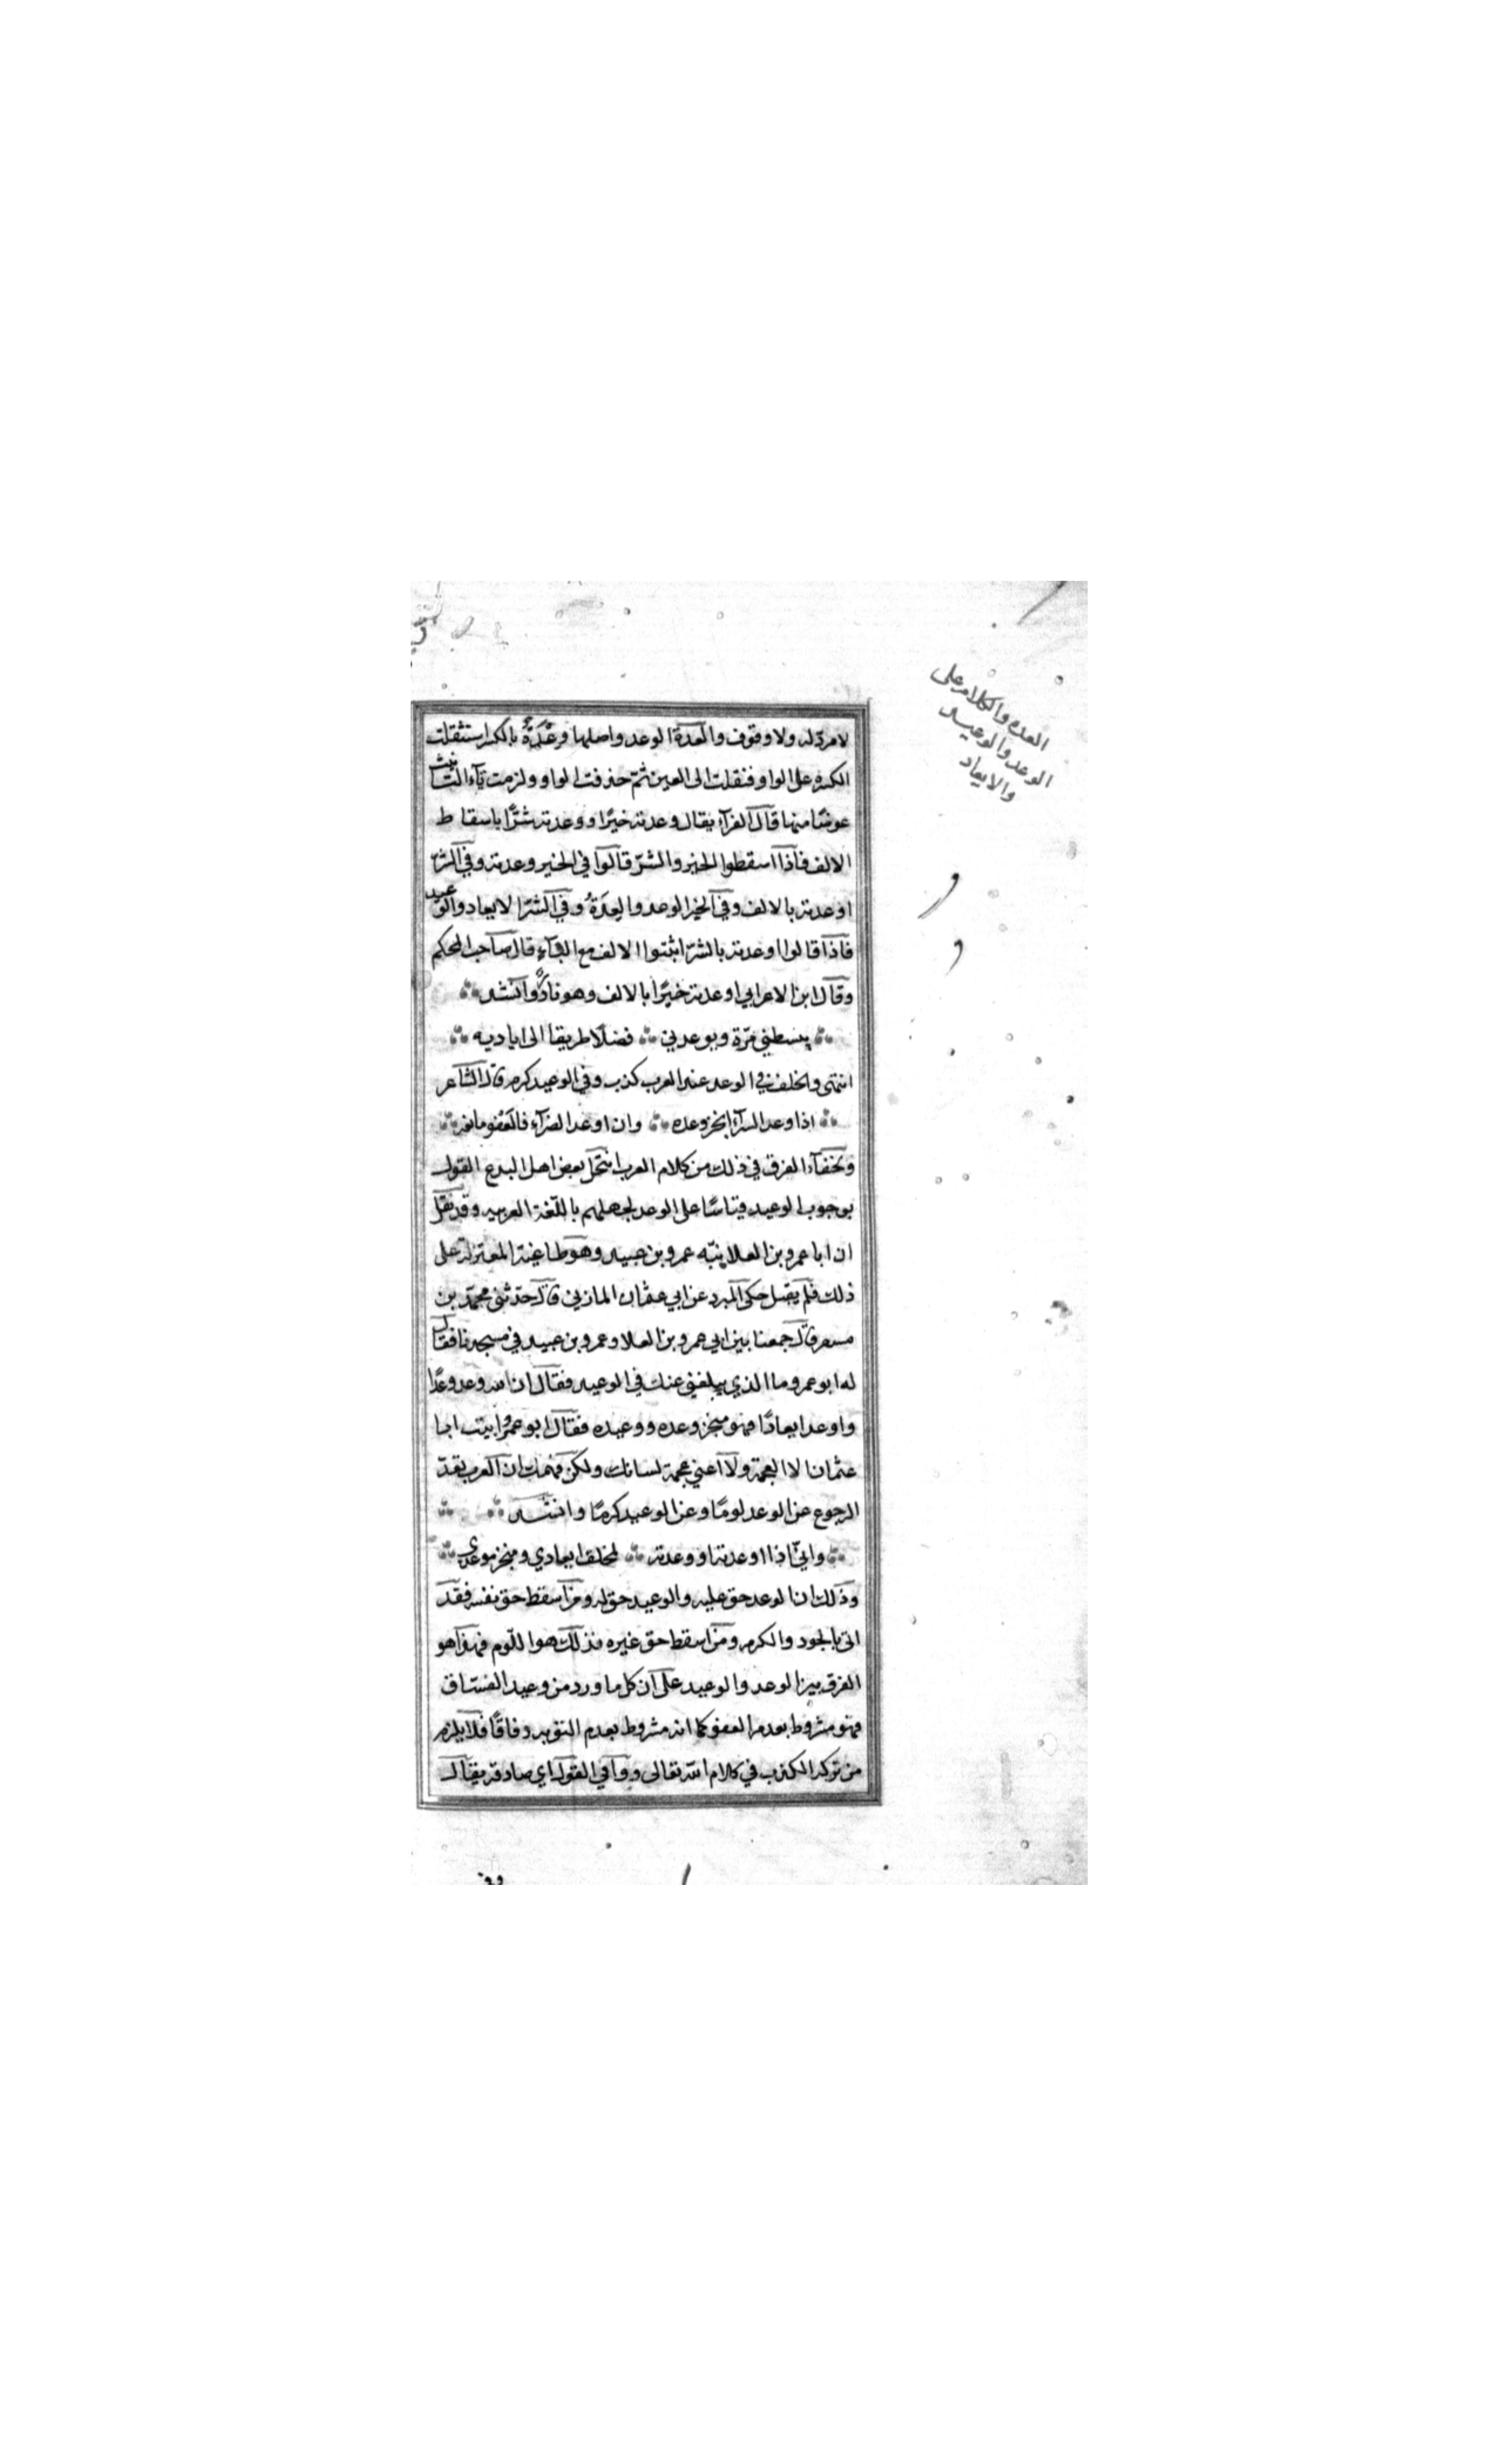 العده والكلام على
الوعد والوعيد
والايعاد
لا مردّ له ولا وقوف والعدة الوعد واصلها وِعْدَةٌ بالكسر استثقلت
الكسرة على الواو فنقلت الى العين ثمّ حذفت الواو ولزمت تاء التانيث
عوضًا منها قال الفرآء يقال وعدته خيرًا ووعدته شرًّا باسقاط
الالف فاذا اسقطوا الخير والشرّ قالوا في الخير وعدته وفي الشرّ
اوعدته بالالف وفي الخير الوعد والعِدَةُ وفي الشرّ الايعاد والوعيد
فاذا قالوا اوعدته بالشرّ اثبتوا الالف مع البآء قال صاحب المحكم
وقال ابن الاعرابي اوعدته خيرًا بالالف وهو نادرٌ وانشد
يبسطني مرّة ويوعدني فضلًا طريقا الى اياديه
انتهى والخلف في الوعد عند العرب كذب وفي الوعيد كرم قال الشاعر
اذا وعد السرآء انجز وعده وان اوعد الضرآء فالعَفْو مانعه
ولخفآء الفرق في ذلك من كلام العرب انتحل بعض اهل البدع القول
بوجوب الوعيد قياسًا على الوعد لجهلهم باللّغة العربيه وقد نقل
ان ابا عمرو بن العلا نبّه عمرو بن عبيد وهو طاغية المعتزلة على
ذلك فلم يقبل حكى المبرد عن ابي عثمان المازني قال حدّثني محمّد بن
مسعر قال جمعنا بين ابي عمرو بن العلا وعمرو بن عبيد في مسجدنا فقال
له ابو عمرو ما الذي يبلغني عنك في الوعيد فقال ان الله وعد وعدًا
واوعد ايعادًا فهو منجز وعده ووعيده فقال ابو عمرو ابيت ابا
عثمان الا العجمة ولا اعني عجمة لسانك ولكن فهمك ان العرب تعدّ
الرجوع عن الوعد لومًا وعن الوعيد كرمًا وانشد
واني اذا اوعدته او وعدته لمخلف ايعادي ومنجز موعدي
وذلك ان الوعد حق عليه والوعيد حق له ومن اسقط حق نفسه فقد
اتى بالجود والكرم ومن اسقط حق غيره فذلك هو اللّوم فهذا هو
الفرق بين الوعد والوعيد على ان كل ما ورد من وعيد الفسّاق
فهو مشروط بعدم العفو كما انه مشروط بعدم التوبه وفاقًا فلا يلزم
من تركه الكذب في كلام الله تعالى ووافي القول اي صادقه يقال